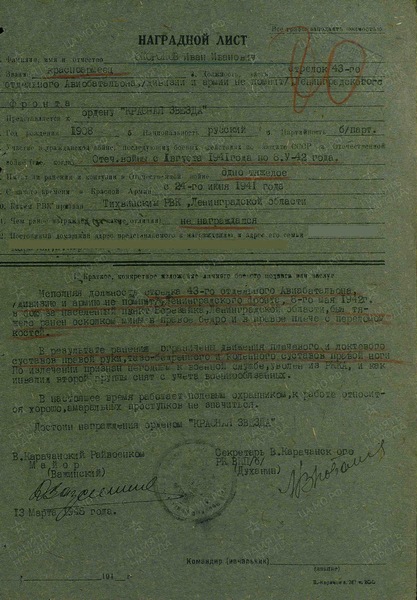 Все графы заполнять полностью
НАГРАДНОЙ ЛИСТ
1. Фамилия, имя и отчество Иван Иванович
2. Звание красноармеец 3. Должность, часть стрелок 43-го
отдельного Авиобатальона, /дивизии и армии не помнит/ Ленинградского
фронта
Представляется к ордену "КРАСНАЯ ЗВЕЗДА"
60
4. Год рождения 1908 5. Национальность русский 6. Партийность б/парт.
Отеч.войны с Августа 1941года по 8.У-42 года.
8. Имеет ли ранения и контузии в Отечественной войне одно тяжелое
9. С какого времени в Красной Армии с 24-го июня 1941 года
10. Каким РВК призван РВК, Ленинградской области
11. Чем ранее награжден (за какие отличия) не награждался
12. Постоянный домашний адрес представляемого к награждению и адрес его семьи
1. Краткое, конкретное изложение личного боевого подвига или заслуг
Исполняя должность стрелка 43-го отдельного Авиобатальона,
/дивизию и армию не помнит/ Ленинградского фронта, 8-го мая 1942г.
в бою за населенный пункт Ленинградской области, был тя-
жело ранен осколком мины в правое бедро и в правое плечо с переломом
костей.
В результате ранения ограничения движения плечевого и локтевого
суставов правой руки, тазо-бедренного и коленного суставов правой ноги
По излечении признан негодным к военной службе, уволен из РККА, и как
инвалид второй группы снят с учета военнообязанных.
В настоящее время работает полевым охранником, к работе относит-
ся хорошо, аморальных проступков не значиться.
Достоин награждения орденом "КРАСНАЯ ЗВЕЗДА"
В.Карачанский Райвоенком
Майор
(Важинский)
Секретарь В.Карачанского
РК ВКП/б/
13 Марта 1946 года.
Командир (начальник)